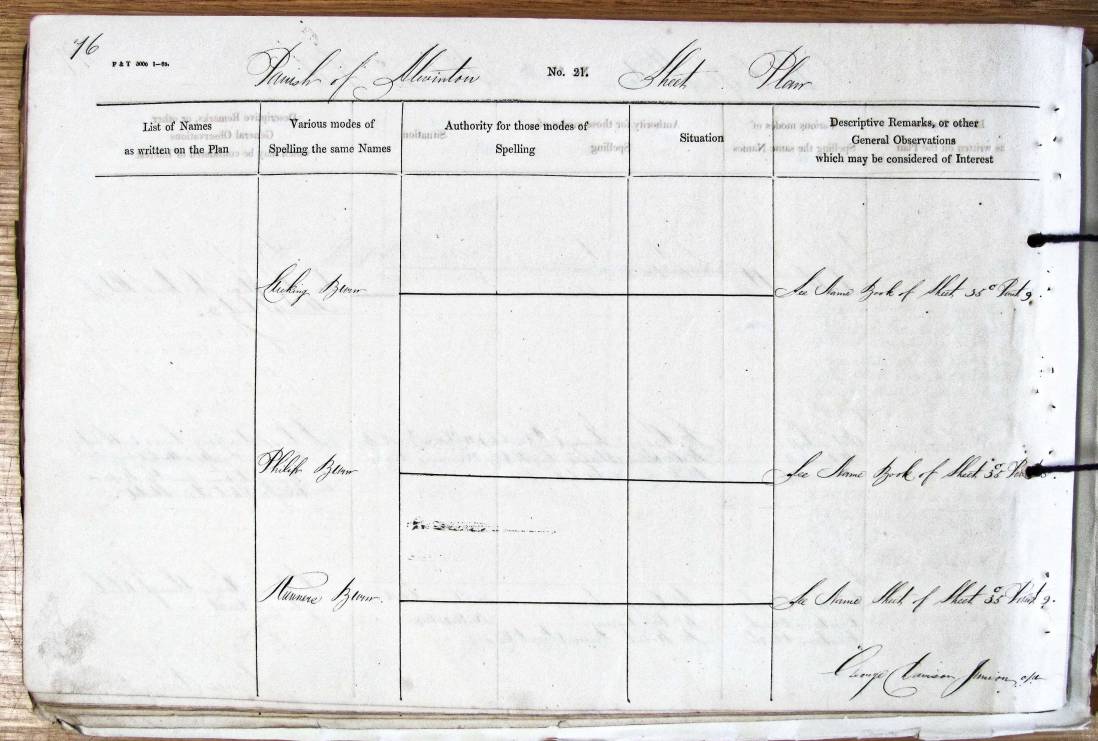 76
Parish of Alwinton No. 21. Sheet Plan
List of Names
as written on the Plan
Various modes of
Spelling the same Names
Authority for those modes of
Spelling
Situation
Descriptive Remarks, or other
General Observations
which may be considered of Interest
Burn See Name Book of Sheet 35
Philip Burn See Name Book of Sheet 35
Burn See Name Sheet of Sheet 35
George Davison